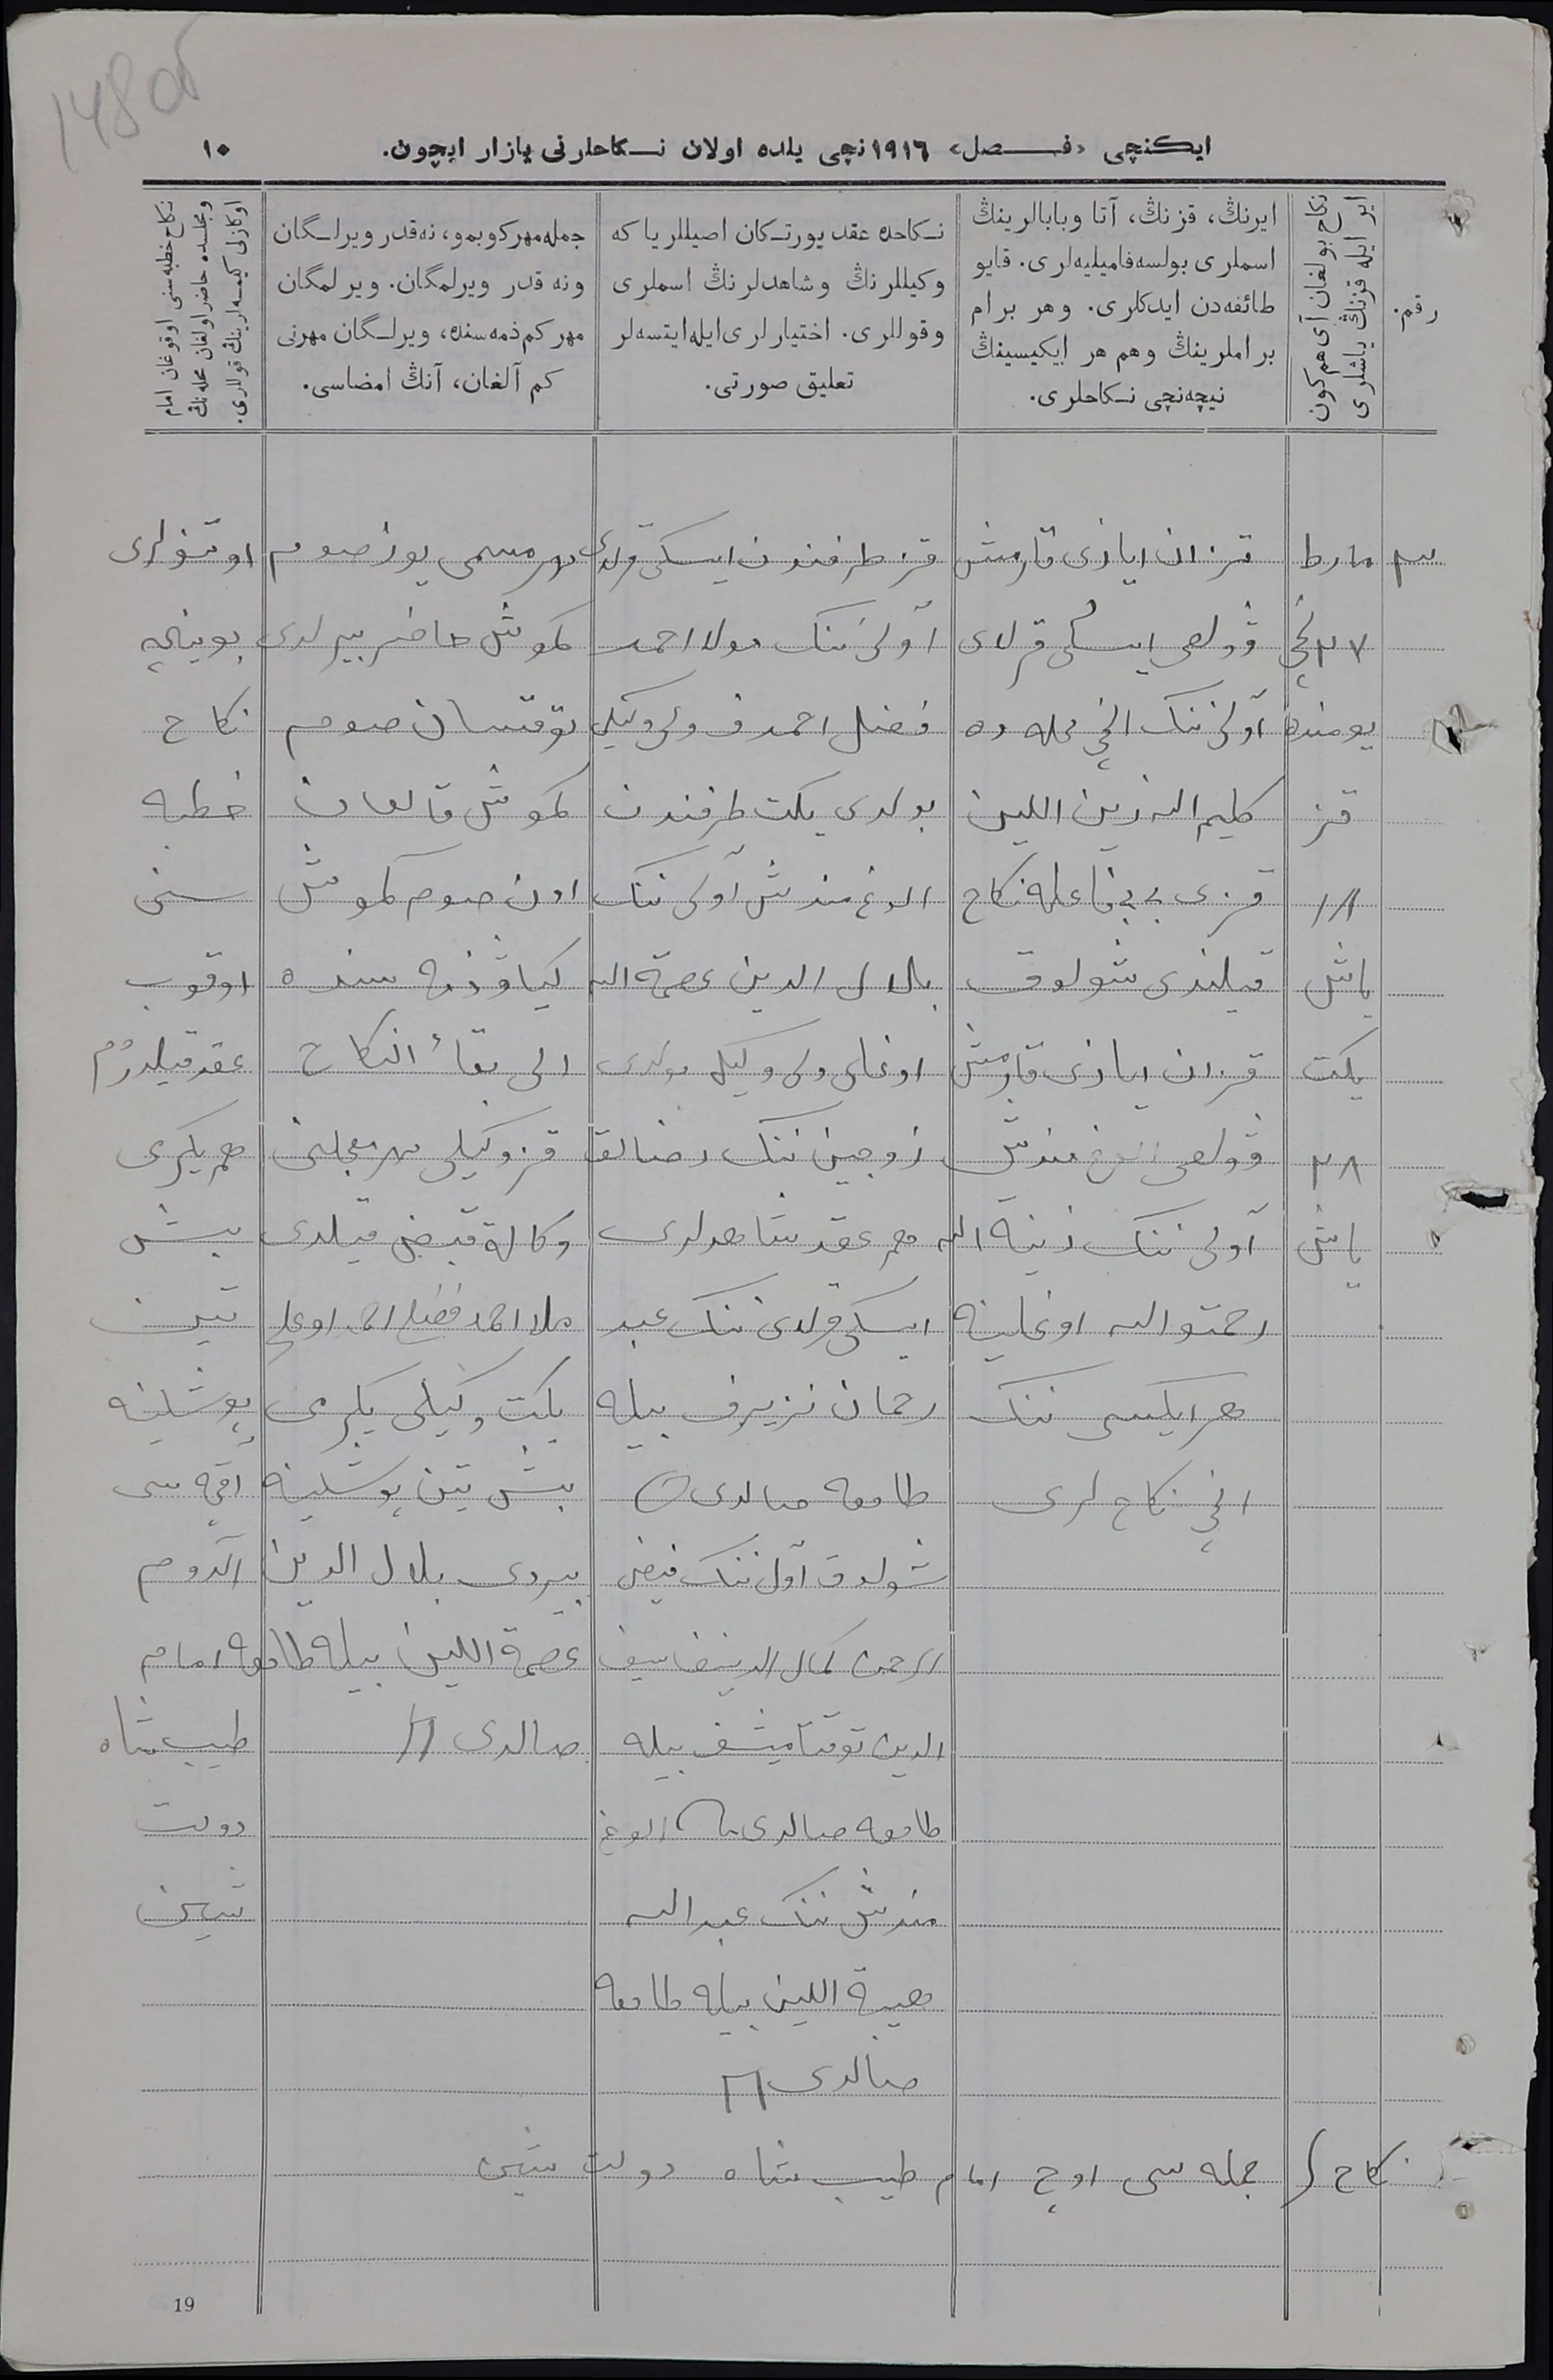 148 об
ایكنچی «فـصل» ١٩١٦نچی یلده اولان نـكاحلرنی یازار ایچون.
١٠
رقم.
نكاح بولغان آی هم كون
ایر ایله قزنڭ یاشلری
ایرنڭ، قزنڭ، آتا وبابالرینڭ
اسملری بولسه فامیلیه‌لری. قایو
طائفه‌دن ایدكلری. وهر برام
براملرینڭ وهم هر ایكیسینڭ
نیچه‌نچی نـكاحلری.
نـكاحده عقد یورتـكان اصیللریا كه
وكیللرنڭ وشاهدلرنڭ اسملری
وقوللری. اختیارلری ایله ایتسه‌لر
تعلیق صورتی.
جمله مهر كوبمو، نه‌قدر ویرلـگان
ونه قدر ویرلمگان. ویرلمگان
مهر كم ذمه‌سنده، ویرلـگان مهرنی
كم آلغان، آنڭ امضاسی.
نكاح خطبه‌سنی اوقوغان امام
ومجلسده حاضر اولغان محله‌نڭ
اوكازلی كیمسه‌لرینڭ قولاری.
٣
مارط
٢٧نچی
یومنده
قز
١٨
یاش
یكت
٢٨
یاش
قزان ایازی قارمش
ڤولصی ایسكی قرلای
آولی ننك انچی محله ده
كلیم الله زین اللین
قزی بی بی فاطمه نكاح
قیلندی شولوق
قزان ایازی قارمش
ڤولصی الوغ مندش
آولی ننك زینة الله
رحمتو الله اوغلینه
هر ایكیسی ننك
انچی نكاح لری
قز طرفندن ایسكی قرلای
آولی ننك مولا احمد
فضل احمدف ولی وكیلی
بولدی یكت طرفندن
الوغ مندش آولی ننك
بلال الدین عصمة الله
اوغلی ولی وكیل بولدی
زوجین ننك رضالق
هم عقد شاهدلری
ایسكی قرلای ننك عبد
رحمان نزیرف بیله
طامغه صالدی
شولوق آول ننك فیض
الرحمن كمال الدینف سیف
الدین توقتامیشف بیله
طامغه صالدی الوغ
مندش ننك عبد الله
هیبة اللین بیله طامغه
صالدی
مهر مسمی یوز صوم
كموش حاضر بیرلدی
توقسان صوم
كموش قالغان
اون صوم كموش
كیاو ذمه سنده
الی بقاء النكاح
قز وكیلی مهر معجلنی
وكالة قبض قیلدی
ملا احمد فضل احمد اوغلی
یكت وكیلی یكرمی
بیش تین پوشلینه
بیردی بلال الدین
عصمة اللین بیله طامغه
صالدی
اوتنولری
بوینچه
نكاح
خطبه
سنی
اوقوب
عقد قیلدوم
هم یكرمی
بیش
تین
پوشلینه
آقچه سی
آلدوم
امام
طیب شاه
دولت
شین
نكاح جمله سی اوچ امام طیب شاه دولت شین
19